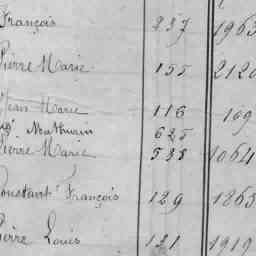 François 237 1963
Pierre Marie 155 2120
Jean Marie 116 109
Mathurin 625
Pierre Marie 533 1064
Constant François 129 1863
Pierre Louis 131 1919